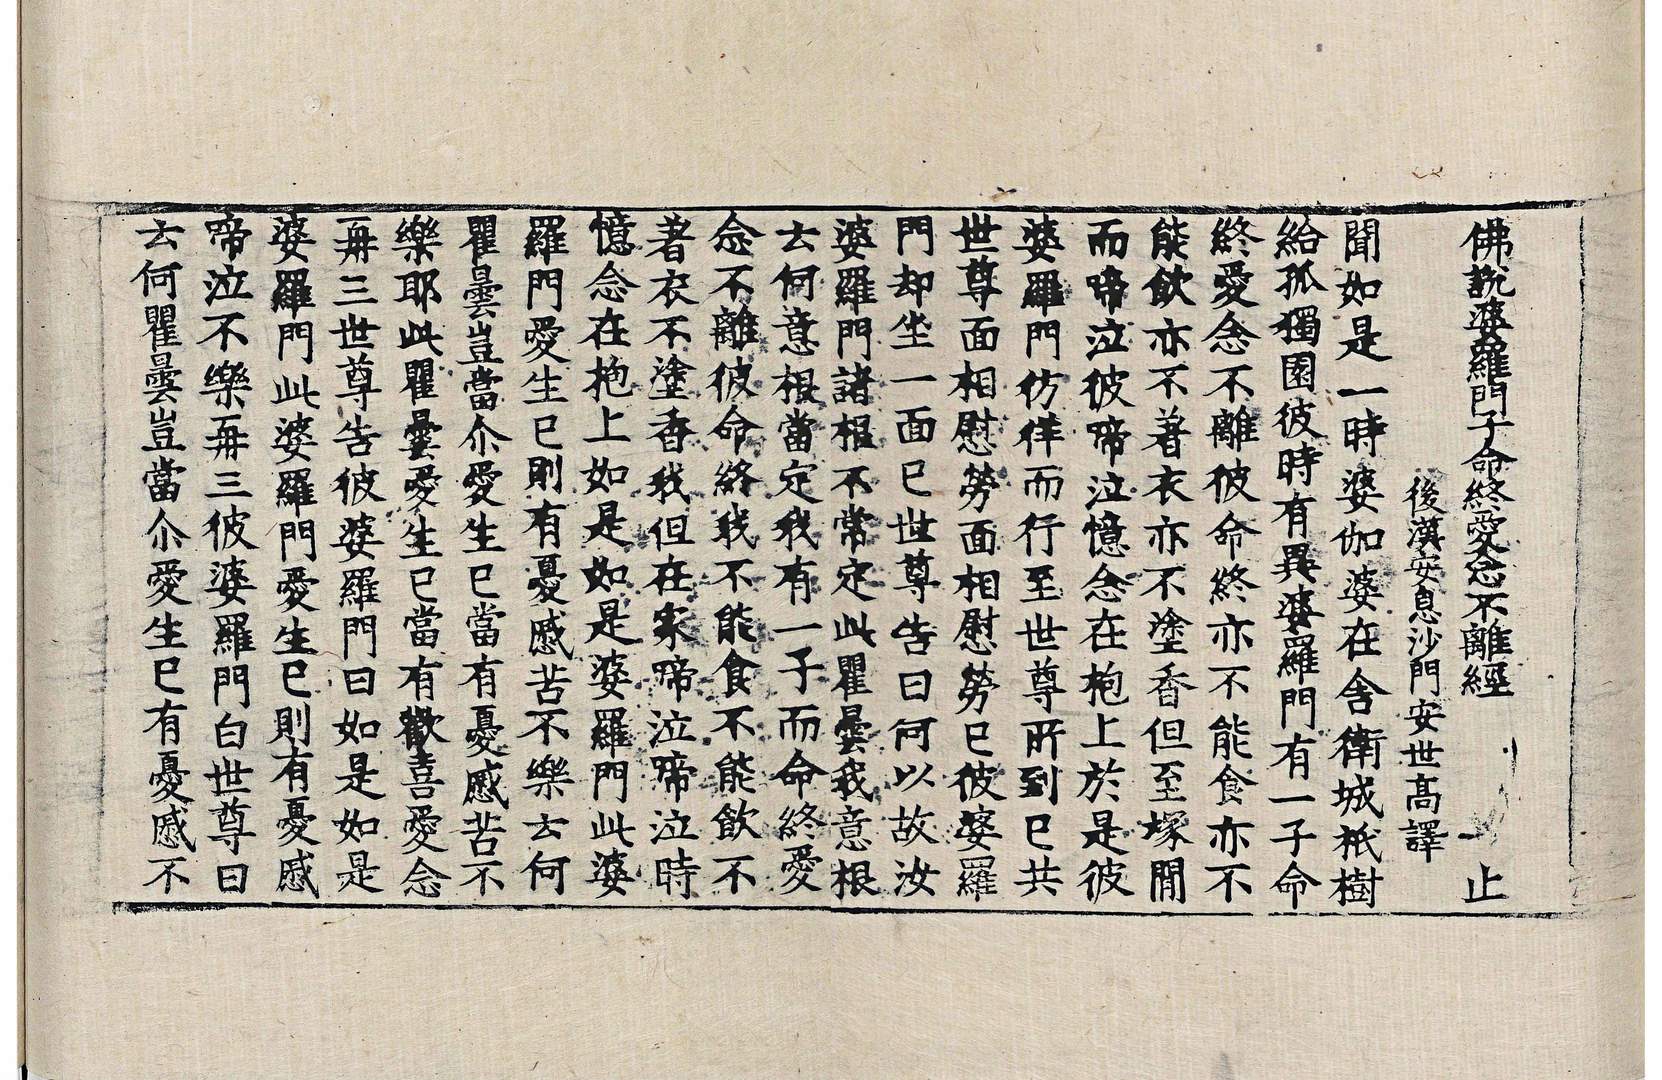 佛說婆羅門子命終愛念不離經 止
後漢安息沙門安世髙譯
聞如是一時婆伽婆在舍衛城衹樹
給孤獨園彼時有異婆羅門有一子命
終愛念不離彼命終亦不能食亦不
能飲亦不著衣亦不塗香但至塚閒
而啼泣彼啼泣憶念在抱上於是彼
婆羅門彷徉而行至世尊所到已共
世尊面相慰勞面相慰勞已彼婆羅
門却坐一面已世尊告曰何以故汝
婆羅門諸根不常定此瞿曇我意根
云何意根當定我有一子而命終愛
念不離彼命終我不能食不能飲不
著衣不塗香我但在家啼泣啼泣時
憶念在抱上如是如是婆羅門此婆
羅門愛生已則有憂慼苦不樂云何
瞿曇豈當尒愛生已當有憂慼苦不
樂耶此瞿曇愛生已當有歡喜愛念
再三世尊告彼婆羅門曰如是如是
婆羅門此婆羅門愛生已則有憂慼
啼泣不樂再三彼婆羅門白世尊曰
云何瞿曇豈當尒愛生已有憂慼不